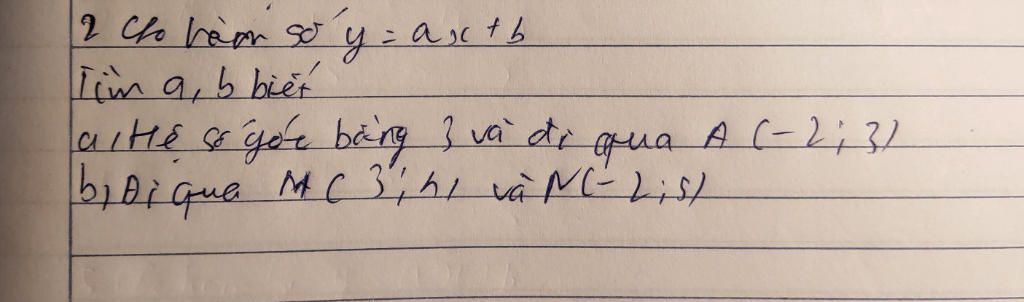 2 Cho hàm số y = ax + b
Tìm a, b biết
a, Hệ số góc bằng 3 và đi qua A (-2; 3)
b, Đi qua M ( 3; 4) và N(-2; 5)